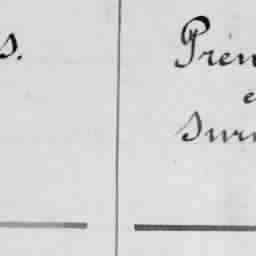 s.
Prén
e
Surn